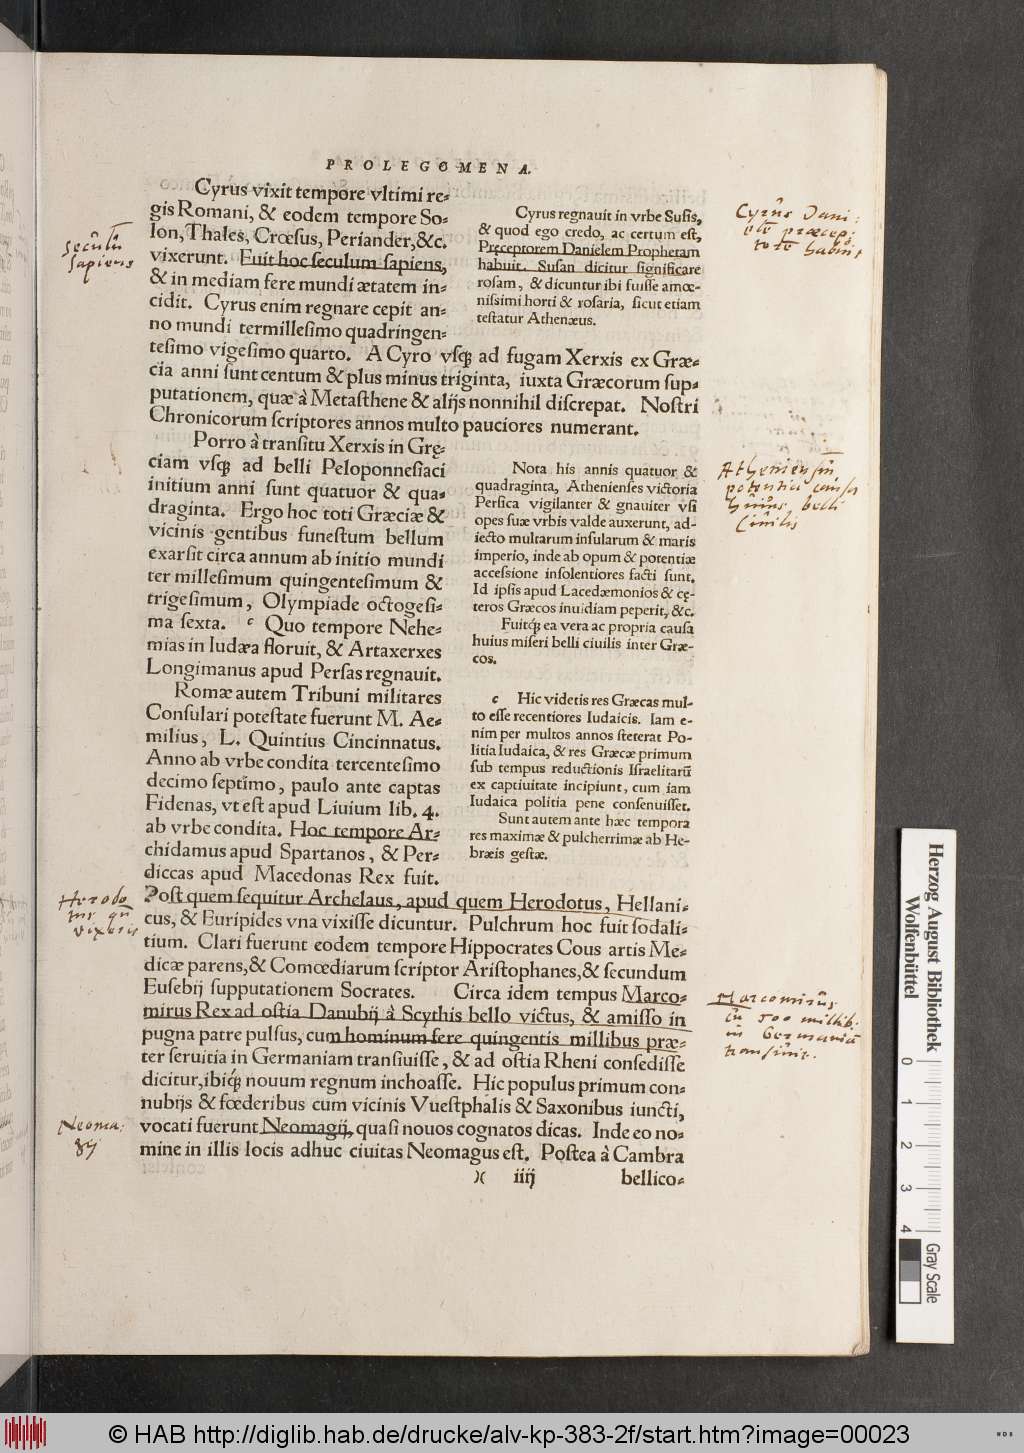 PROLEGOMENA.
Cyrus vixit tempore vltimi re-
gis Romani, & eodem tempore So-
lon, Thales, Crœsus, Periander, &c.
vixerunt. Fuit hoc seculum sapiens,
& in mediam fere mundi ætatem in-
cidit. Cyrus enim regnare cepit an-
no mundi termillesimo quadringen-
tesimo vigesimo quarto. A Cyro vsq; ad fugam Xerxis ex Græ-
cia anni sunt centum & plus minus triginta, iuxta Græcorum sup-
putationem, quæ à Metasthene & alijs nonnihil discrepat. Nostri
Chronicorum scriptores annos multo pauciores numerant.
Cyrus regnauit in vrbe Susis,
& quod ego credo, ac certum est,
Preceptorem Danielem Prophetam
habuit. Susan dicitur significare
rosam, & dicuntur ibi fuisse amœ-
nissimi horti & rosaria, sicut etiam
testatur Athenæus.
Seculū
sapiens
Cyrus Dani:
elē præcep:
torē habuit
Porro à transitu Xerxis in Grę-
ciam vsq; ad belli Peloponnesiaci
initium anni sunt quatuor & qua-
draginta. Ergo hoc toti Græciæ &
vicinis gentibus funestum bellum
exarsit circa annum ab initio mundi
ter millesimum quingentesimum &
trigesimum, Olympiade octogesi-
ma sexta. c Quo tempore Nehe-
mias in Iudæa floruit, & Artaxerxes
Longimanus apud Persas regnauit.
Romæ autem Tribuni militares
Consulari potestate fuerunt M. Ae-
milius, L. Quintius Cincinnatus.
Anno ab vrbe condita tercentesimo
decimo septimo, paulo ante captas
Fidenas, vt est apud Liuium lib. 4.
ab vrbe condita. Hoc tempore Ar-
chidamus apud Spartanos, & Per-
diccas apud Macedonas Rex fuit.
Nota his annis quatuor &
quadraginta, Athenienses victoria
Persica vigilanter & gnauiter vsi
opes suæ vrbis valde auxerunt, ad-
iecto multarum insularum & maris
imperio, inde ab opum & potentiæ
accessione insolentiores facti sunt.
Id ipsis apud Lacedæmonios & cę-
teros Græcos inuidiam peperit, &c.
Fuitq; ea vera ac propria causa
huius miseri belli ciuilis inter Græ-
cos.
c Hic videtis res Græcas mul-
to esse recentiores Iudaicis. Iam e-
nim per multos annos steterat Po-
litia Iudaica, & res Græcæ primum
sub tempus reductionis Israelitarū
ex captiuitate incipiunt, cum iam
Iudaica politia pene consenuisset.
Sunt autem ante hæc tempora
res maximæ & pulcherrimæ ab He-
bræis gestæ.
Atheniensiū
potentia causa
huius belli
Ciuilis
Post quem sequitur Archelaus, apud quem Herodotus, Hellani-
cus, & Euripides vna vixisse dicuntur. Pulchrum hoc fuit sodali-
tium. Clari fuerunt eodem tempore Hippocrates Cous artis Me-
dicæ parens, & Comœdiarum scriptor Aristophanes, & secundum
Eusebij supputationem Socrates. Circa idem tempus Marco-
mirus Rex ad ostia Danubij à Scythis bello victus, & amisso in
pugna patre pulsus, cum hominum fere quingentis millibus præ-
ter seruitia in Germaniam transiuisse, & ad ostia Rheni consedisse
dicitur, ibiq; nouum regnum inchoasse. Hic populus primum con-
nubijs & fœderibus cum vicinis Vuestphalis & Saxonibus iuncti,
vocati fuerunt Neomagij, quasi nouos cognatos dicas. Inde eo no-
mine in illis locis adhuc ciuitas Neomagus est. Postea à Cambra
)( iiij bellico-
Herodo
vixerit
Marcomirus
cū 500 millib:
in Germaniā
transiuit.
Neoma:
gij
Herzog August Bibliothek
Wolfenbüttel
0 1 2 3 4
Gray Scale
© HAB http://diglib.hab.de/drucke/alv-kp-383-2f/start.htm?image=00023